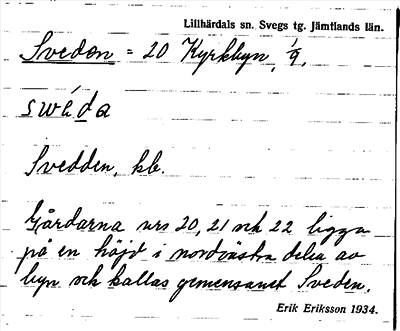 Lillhärdals sn. Svegs tg. Jämtlands län.
Sveden = 20 Kyrkbyn, 1/9,
swéda
Svedden, kb.
Gårdarna nrs 20, 21 och 22 ligga
på en höjd i nordvästra delen av
byn och kallas gemensamt Sveden.
Erik Eriksson 1934.